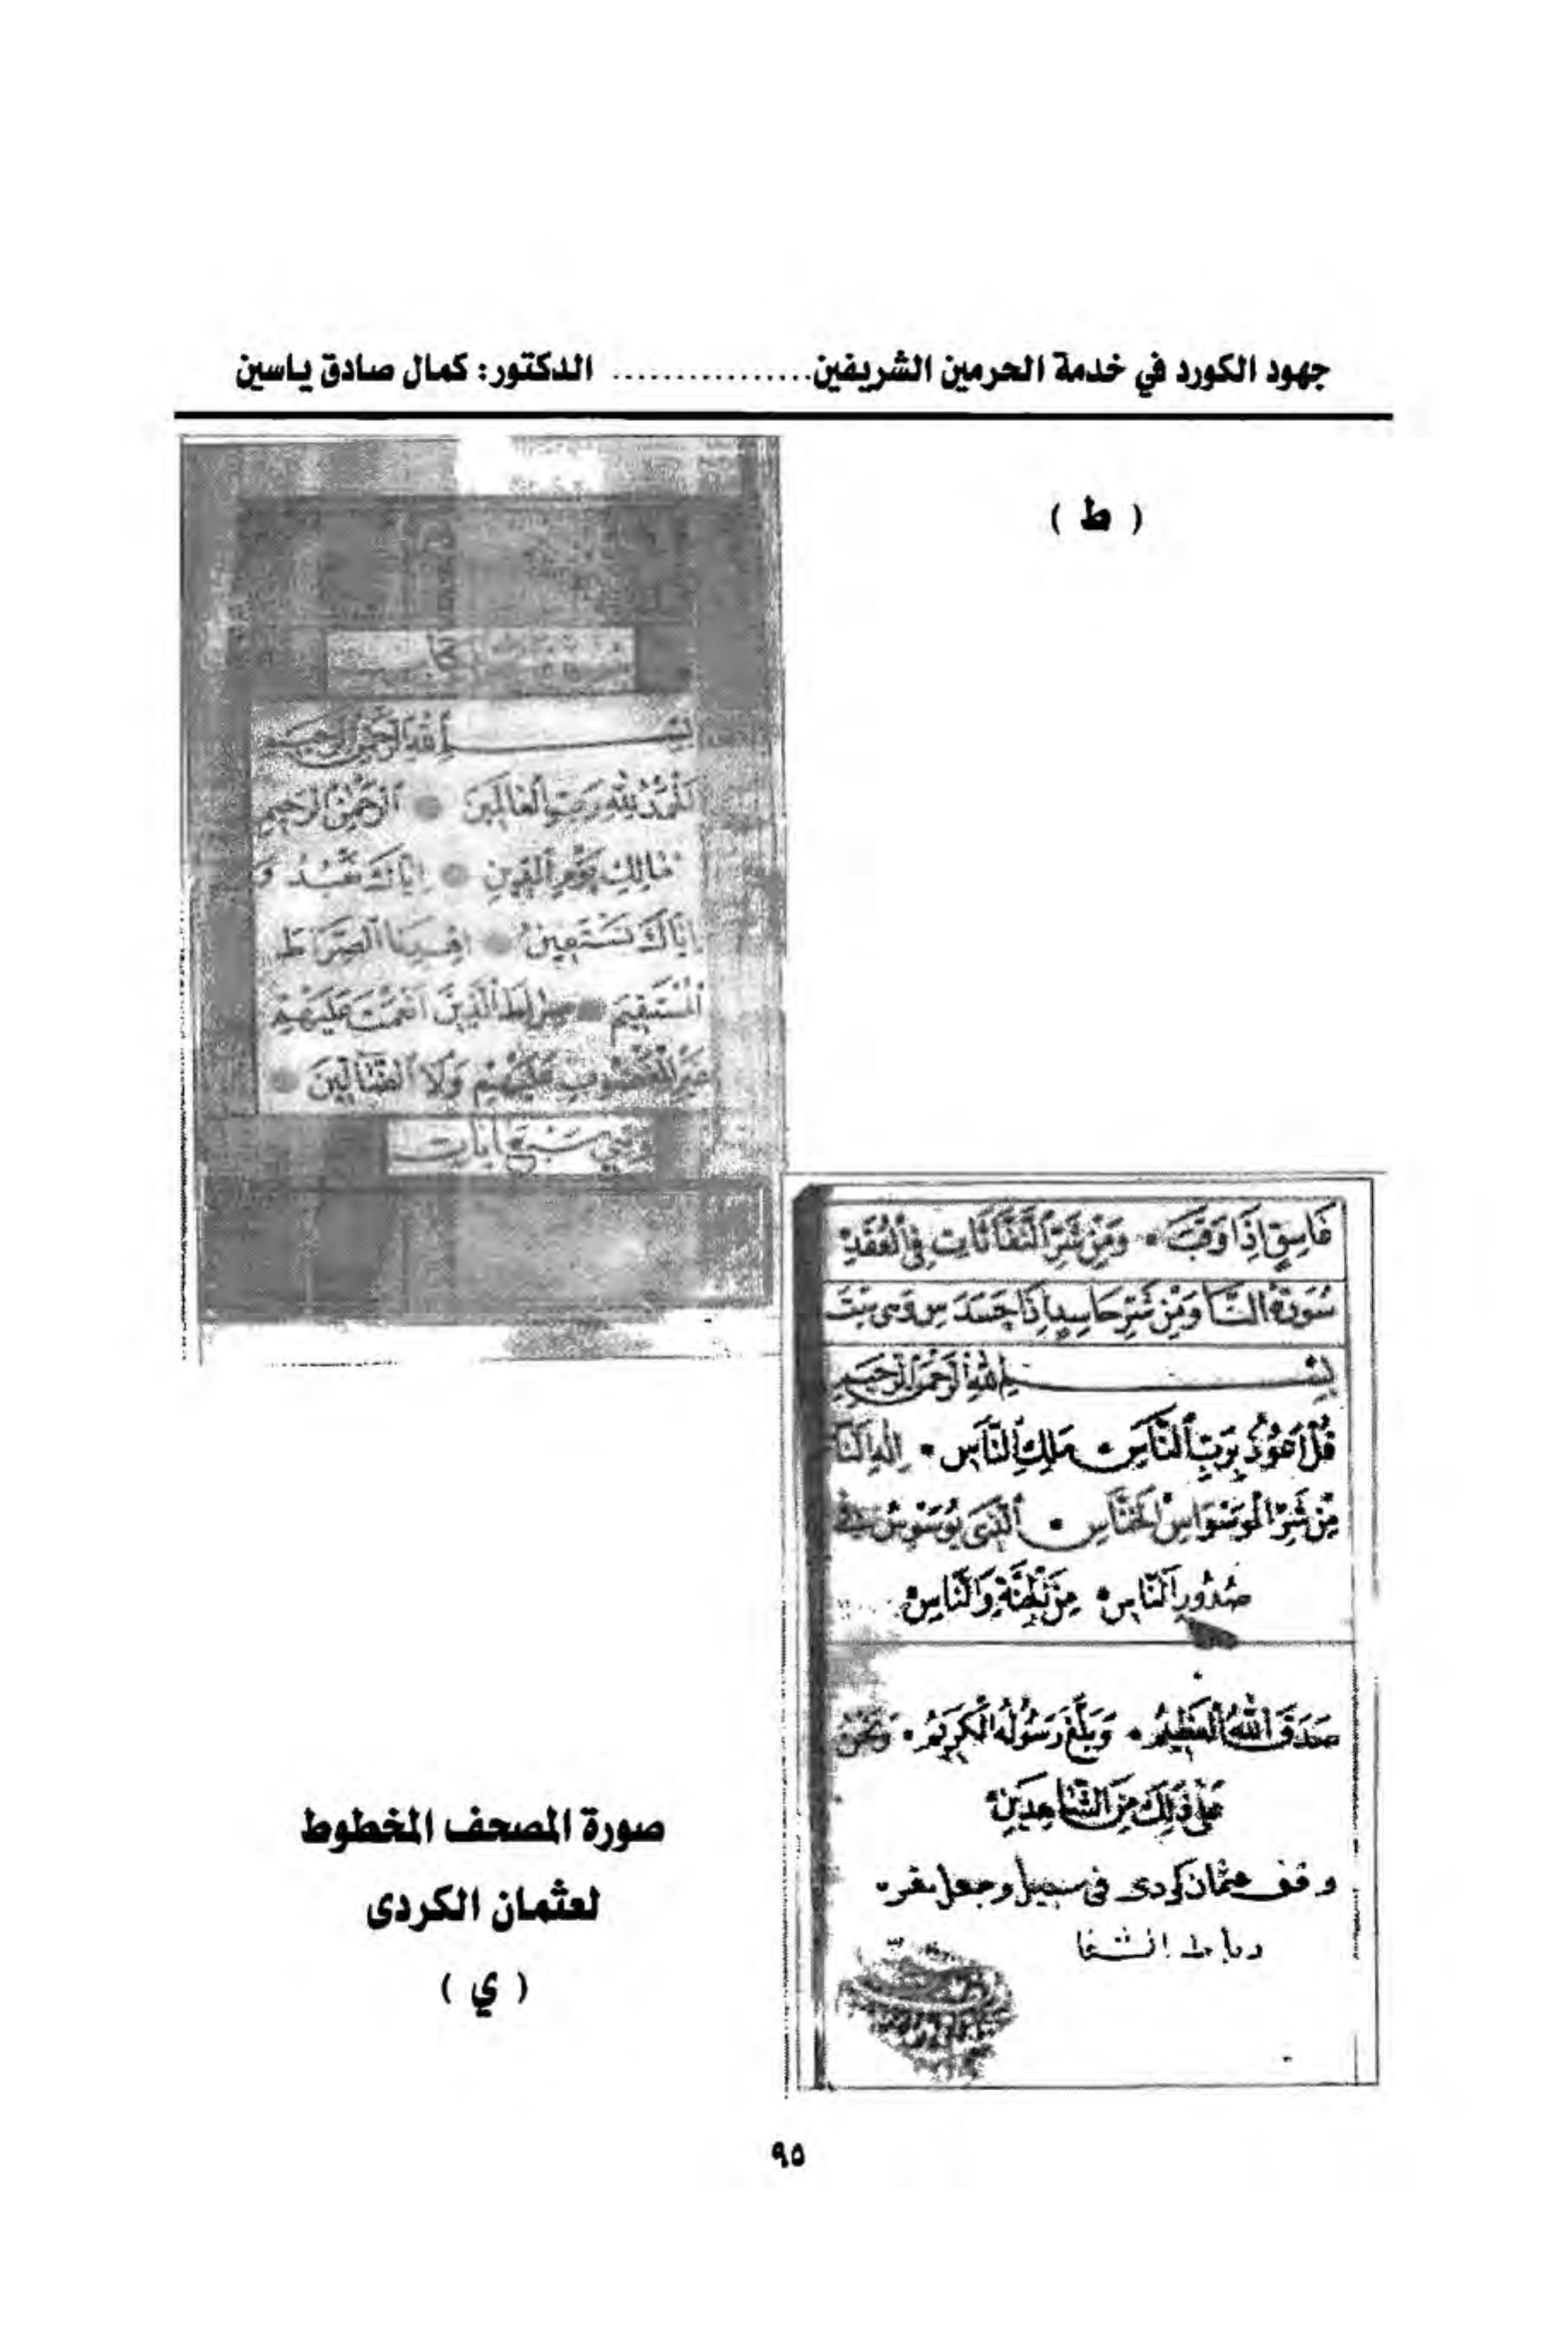 جهود الكورد في خدمة الحرمين الشريفين................ الدكتور: كمال صادق ياسين
( ط )
بسم الله الرحمن الرحيم
الحمد لله رب العالمين الرحمن الرحيم
مالك يوم الدين اياك نعبد و
اياك نستعين اهدنا الصراط
المستقيم صراط الذين انعمت عليهم
غير المغضوب عليهم ولا الضالين
سبع ايات
غَاسِقٍ اِذَا وَقَبَ وَمِنْ شَرِّ النَّفَّاثَاتِ فِي الْعُقَدِ
سُورَة النا وَمِنْ شَرِّ حَاسِدٍ اِذَا حَسَدَ س وهى ست
بِسْمِ اللهِ الرَّحْمٰنِ الرَّحِيمِ
قُلْ اَعُوذُ بِرَبِّ النَّاسِ مَلِكِ النَّاسِ اِلٰهِ النَّا
مِنْ شَرِّ الْوَسْوَاسِ الْخَنَّاسِ الَّذِى يُوَسْوِسُ فِى
صُدُورِ النَّاسِ مِنَ الْجِنَّةِ وَالنَّاسِ
صَدَقَ اللهُ الْعَظِيمُ وَبَلَّغَ رَسُولُهُ الْكَرِيمُ وَنَحْنُ
عَلٰى ذٰلِكَ مِنَ الشَّاهِدِينَ
وقف عثمان كردى فى سبيل وجعل مقر
رباط الشفا
صورة المصحف المخطوط
لعثمان الكردى
( ي )
٩٥